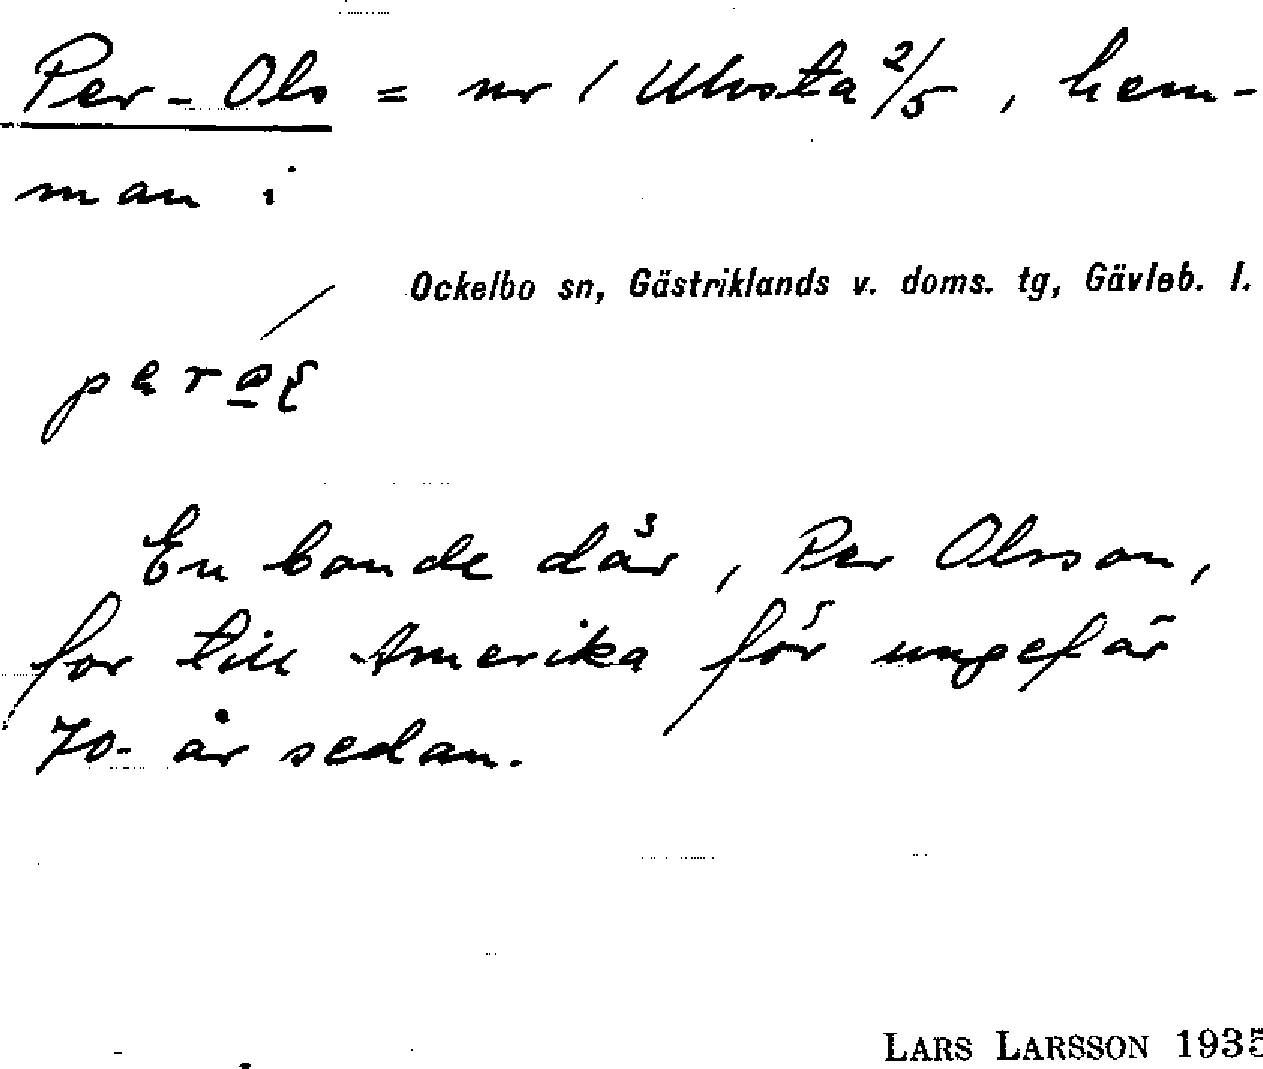 Per-Ols = nr 1 Ulvsta 2/5, hem-
man i
Ockelbo sn, Gästriklands v. doms. tg, Gävleb. l.
En bonde där, Per Olsson,
for till Amerika för ungefär
70 år sedan.
LARS LARSSON 1935